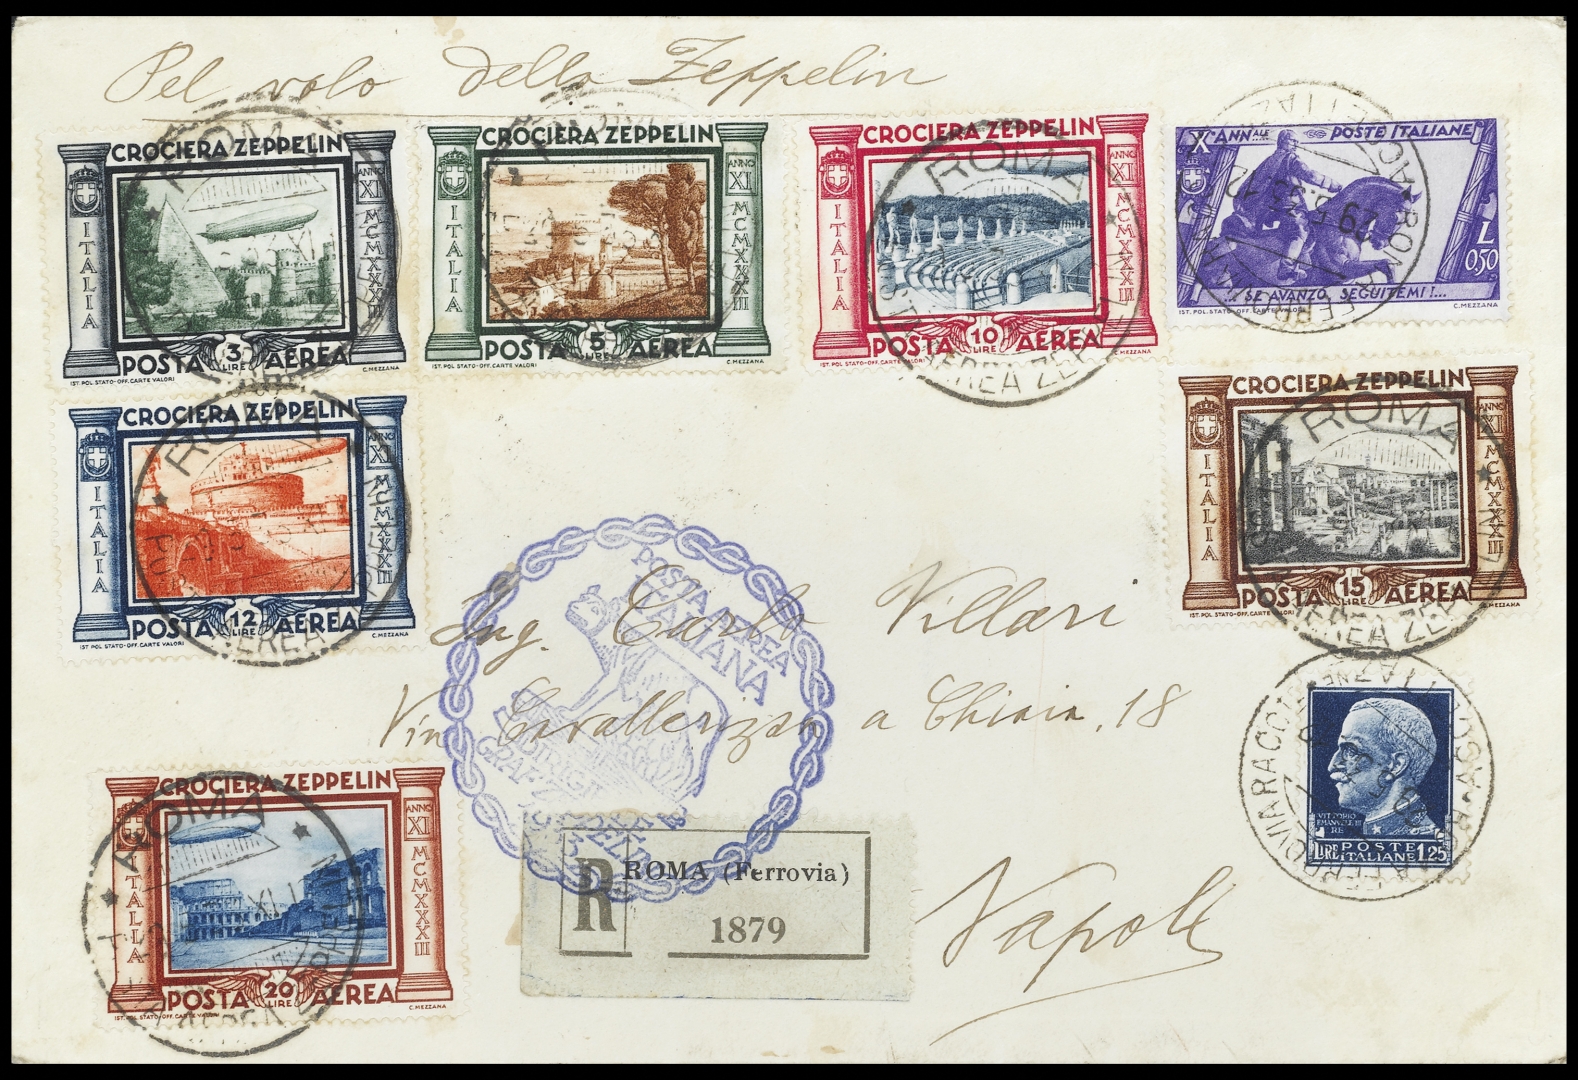 Pel volo dello Zeppelin
CROCIERA ZEPPELIN
ITALIA
ANNO XI MCMXXXIII
POSTA 3 LIRE AEREA
IST. POL. STATO-OFF. CARTE VALORI C. MEZZANA
CROCIERA ZEPPELIN
ITALIA
ANNO XI MCMXXXIII
POSTA 5 LIRE AEREA
IST. POL. STATO-OFF. CARTE VALORI C. MEZZANA
CROCIERA ZEPPELIN
ITALIA
ANNO XI MCMXXXIII
POSTA 10 LIRE AEREA
IST. POL. STATO-OFF. CARTE VALORI C. MEZZANA
X° ANN.ALE POSTE ITALIANE
L 0,50
...SE AVANZO, SEGUITEMI!...
IST. POL. STATO-OFF. CARTE VALORI C. MEZZANA
CROCIERA ZEPPELIN
ITALIA
ANNO XI MCMXXXIII
POSTA 12 LIRE AEREA
IST. POL. STATO-OFF. CARTE VALORI C. MEZZANA
CROCIERA ZEPPELIN
ITALIA
ANNO XI MCMXXXIII
POSTA 15 LIRE AEREA
IST. POL. STATO-OFF. CARTE VALORI C. MEZZANA
ROMA
ROMA
ROMA
ROMA
POSTA AEREA
ITALIANA
Ing. Carlo Villari
Via Cavallerizza a Chiaia, 18
Napoli
VITTORIO EMANVELE III RE
LIRE POSTE ITALIANE 1,25
CROCIERA ZEPPELIN
ITALIA
ANNO XI MCMXXXIII
POSTA 20 LIRE AEREA
IST. POL. STATO-OFF. CARTE VALORI C. MEZZANA
ROMA
R ROMA (Ferrovia)
1879